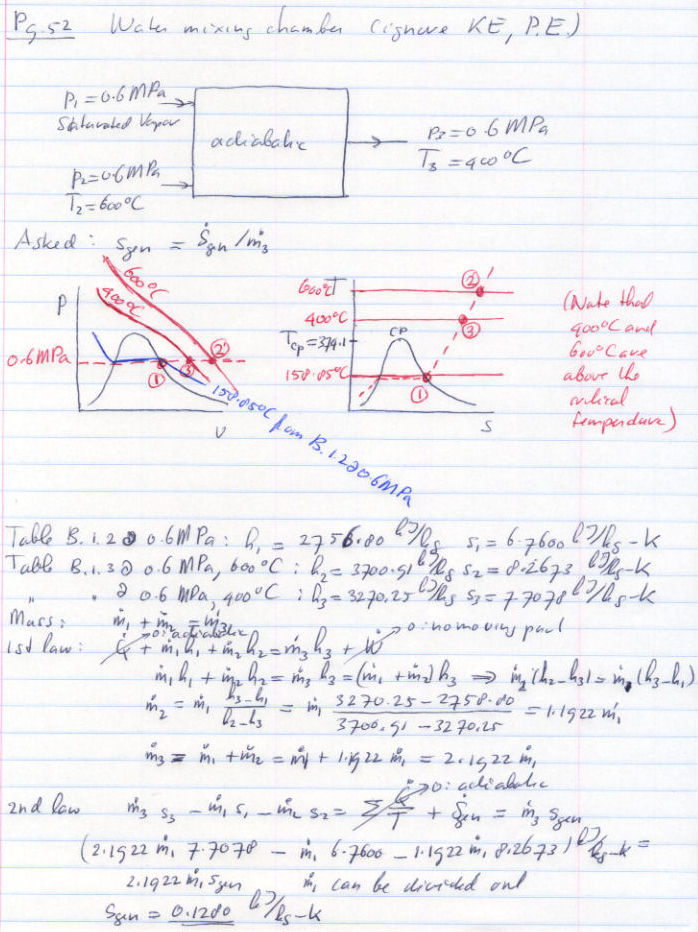 Pg.52 Water mixing chamber (ignore KE, P.E.)
P₁ = 0.6 MPa
Saturated Vapor
adiabatic
P₂ = 0.6 MPa
T₂ = 600°C
P₃ = 0.6 MPa
T₃ = 400°C
Asked: sgen = Ṡgen/ṁ₃
P
600°C
400°C
0.6MPa
① ③ ②
158.85°C from B.1.2 @ 0.6MPa
v
T
600°C
②
400°C
③
Tcp = 374.1
CP
158.85°C
①
s
(Note that
400°C and
600°C are
above the
critical
temperature)
Table B.1.2 @ 0.6 MPa: h₁ = 2756.80 kJ/kg s₁ = 6.7600 kJ/kg-K
Table B.1.3 @ 0.6 MPa, 600°C: h₂ = 3700.91 kJ/kg s₂ = 8.2673 kJ/kg-K
" " @ 0.6 MPa, 400°C: h₃ = 3270.25 kJ/kg s₃ = 7.7078 kJ/kg-K
Mass: ṁ₁ + ṁ₂ = ṁ₃
0: adiabatic
0: no moving part
1st law: Q̇ + ṁ₁h₁ + ṁ₂h₂ = ṁ₃h₃ + Ẇ
ṁ₁h₁ + ṁ₂h₂ = ṁ₃h₃ = (ṁ₁ + ṁ₂)h₃ ⇒ ṁ₂(h₂-h₃) = ṁ₁(h₃-h₁)
ṁ₂ = ṁ₁ (h₃-h₁)/(h₂-h₃) = ṁ₁ (3270.25 - 2758.80)/(3700.91 - 3270.25) = 1.1922 ṁ₁
ṁ₃ = ṁ₁ + ṁ₂ = ṁ₁ + 1.1922 ṁ₁ = 2.1922 ṁ₁
0: adiabatic
2nd law ṁ₃s₃ - ṁ₁s₁ - ṁ₂s₂ = Σ Q̇/T + Ṡgen = ṁ₃ sgen
(2.1922 ṁ₁ 7.7078 - ṁ₁ 6.7600 - 1.1922 ṁ₁ 8.2673) kJ/kg-K =
2.1922 ṁ₁ sgen ṁ₁ can be divided out
sgen = 0.1280 kJ/kg-K